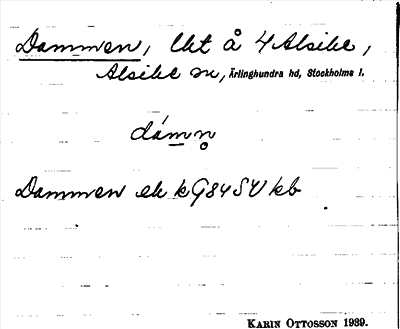 Dammen, lht å 4 Alsike,
Alsike sn, Ärlinghundra hd, Stockholms l.
dámn̥
Dammen ek kG84SV kb
KARIN OTTOSSON 1939.